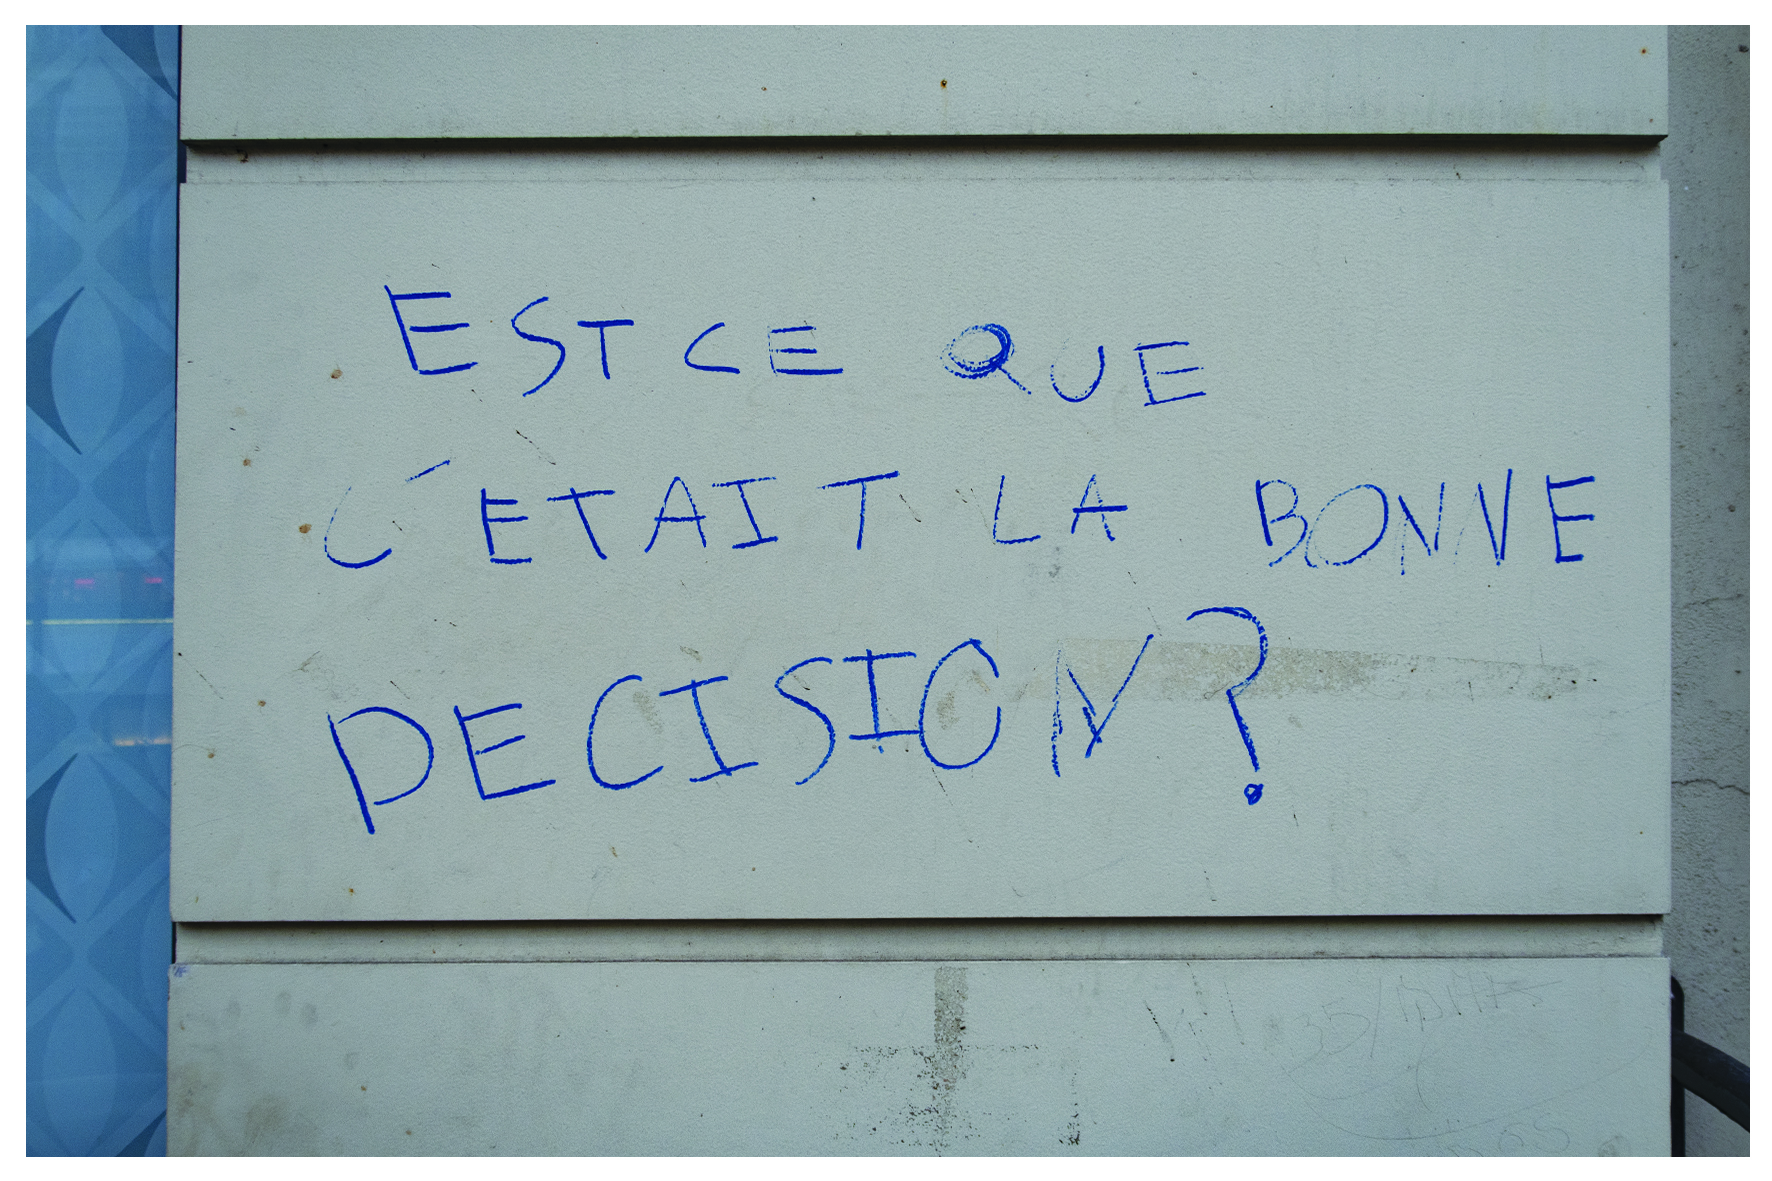 EST CE QUE
C'ETAIT LA BONNE
DECISION?